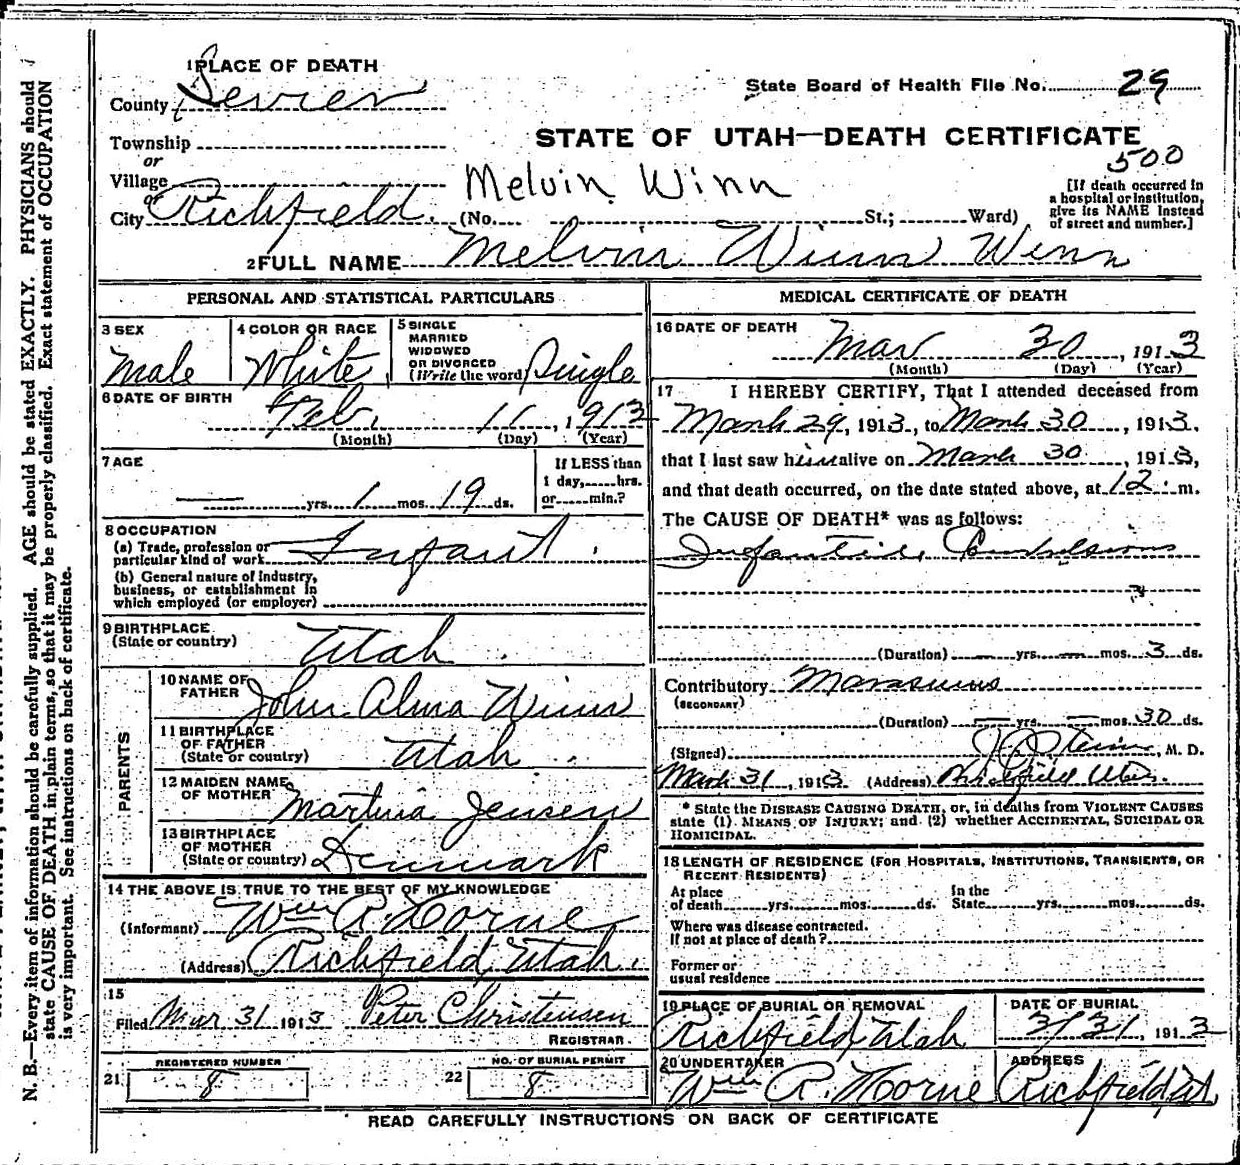 1 PLACE OF DEATH
County Sevier
State Board of Health File No. 29
Township
STATE OF UTAH—DEATH CERTIFICATE
or
500
Village
Melvin Winn
or
City Richfield. (No. St.; Ward)
[If death occurred in a hospital or institution, give its NAME instead of street and number.]
2 FULL NAME Melvin Winn Winn
PERSONAL AND STATISTICAL PARTICULARS
3 SEX
Male
4 COLOR OR RACE
White
5 SINGLE
MARRIED
WIDOWED
OR DIVORCED
(Write the word)
Single
6 DATE OF BIRTH
Feb. 11, 1913
(Month) (Day) (Year)
7 AGE
— yrs. 1 mos. 19 ds.
If LESS than
1 day, hrs.
or min.?
8 OCCUPATION
(a) Trade, profession or
particular kind of work Infant.
(b) General nature of industry,
business, or establishment in
which employed (or employer)
9 BIRTHPLACE
(State or country) Utah
PARENTS
10 NAME OF
FATHER John Alma Winn
11 BIRTHPLACE
OF FATHER
(State or country) Utah
12 MAIDEN NAME
OF MOTHER Martina Jensen
13 BIRTHPLACE
OF MOTHER
(State or country) Denmark
14 THE ABOVE IS TRUE TO THE BEST OF MY KNOWLEDGE
(Informant) Wm R. Horne
(Address) Richfield, Utah.
15
Filed Mar 31 1913 Peter Christensen
REGISTRAR.
21 REGISTERED NUMBER
8
22 NO. OF BURIAL PERMIT
8
MEDICAL CERTIFICATE OF DEATH
16 DATE OF DEATH
Mar 30, 1913
(Month) (Day) (Year)
17 I HEREBY CERTIFY, That I attended deceased from
March 29, 1913, to March 30, 1913.
that I last saw him alive on March 30, 1913,
and that death occurred, on the date stated above, at 12. m.
The CAUSE OF DEATH* was as follows:
Infantile Convulsions
(Duration) — yrs. — mos. 3 ds.
Contributory Marasmus
(SECONDARY)
(Duration) — yrs. — mos. 30 ds.
(Signed) , M. D.
March 31, 1913 (Address) Richfield Utah.
* State the DISEASE CAUSING DEATH, or, in deaths from VIOLENT CAUSES
state (1) MEANS OF INJURY; and (2) whether ACCIDENTAL, SUICIDAL OR
HOMICIDAL.
18 LENGTH OF RESIDENCE (FOR HOSPITALS, INSTITUTIONS, TRANSIENTS, OR
RECENT RESIDENTS)
At place
of death yrs. mos. ds.
In the
State yrs. mos. ds.
Where was disease contracted.
If not at place of death?
Former or
usual residence
19 PLACE OF BURIAL OR REMOVAL
Richfield Utah
DATE OF BURIAL
3/31, 1913
20 UNDERTAKER
Wm R. Horne
ADDRESS
Richfield, Ut.
READ CAREFULLY INSTRUCTIONS ON BACK OF CERTIFICATE
N. B.—Every item of information should be carefully supplied. AGE should be stated EXACTLY. PHYSICIANS should
state CAUSE OF DEATH in plain terms, so that it may be properly classified. Exact statement of OCCUPATION
is very important. See instructions on back of certificate.